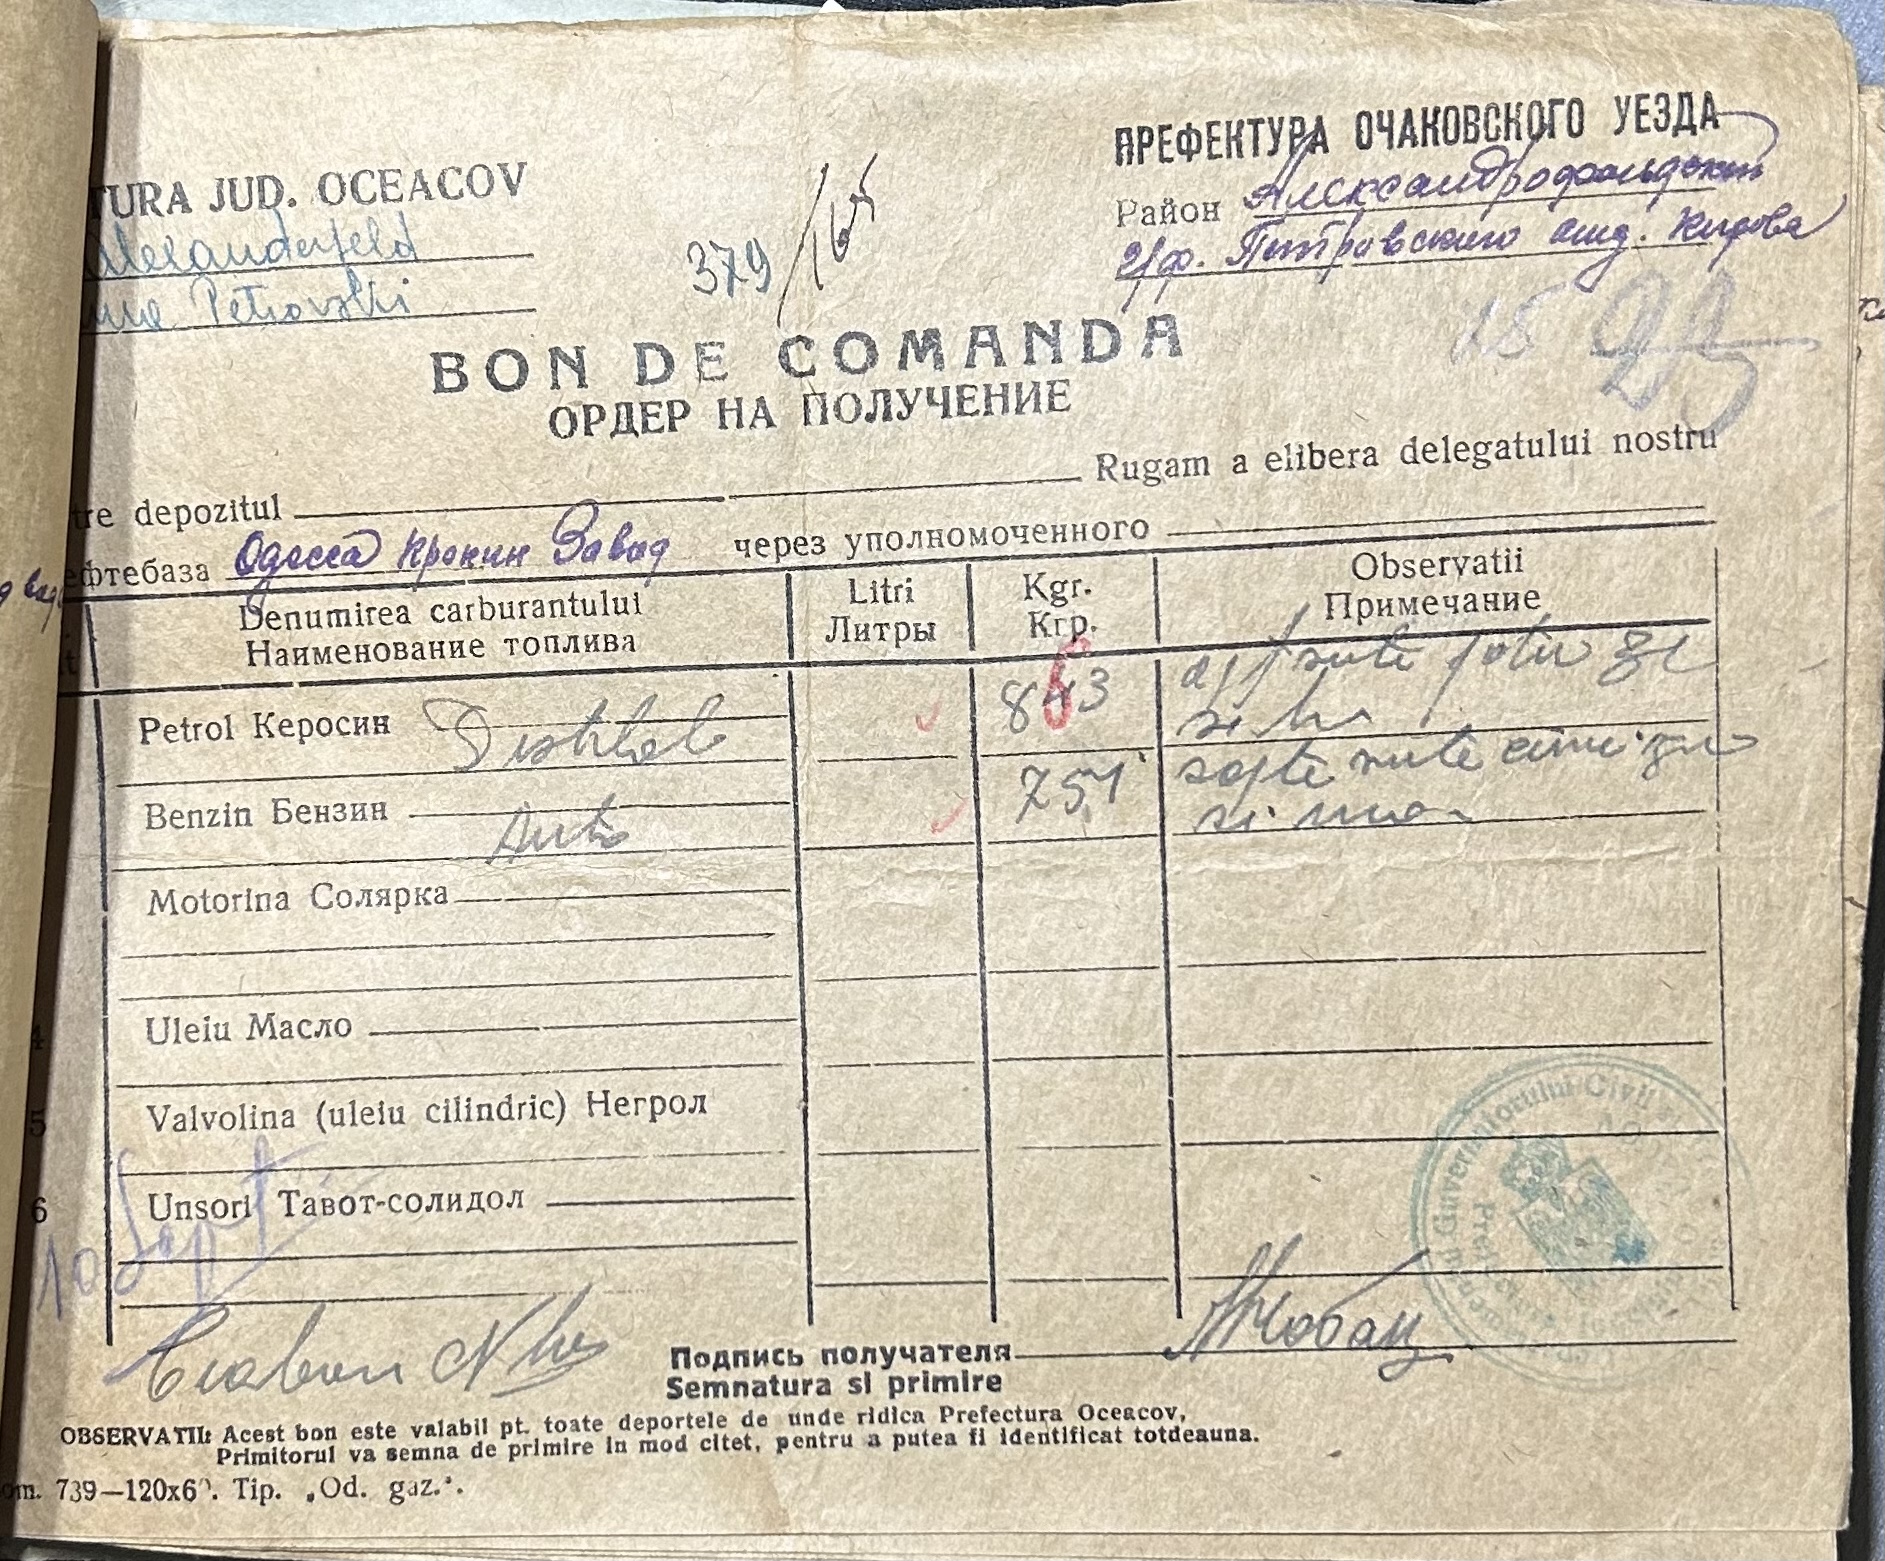 ПРЕФЕКТУРА ОЧАКОВСКОГО УЕЗДА
TURA JUD. OCEACOV
Район Александрофельдский
Alexanderfeld
Petrovski
379/165
г/ф. Петровского Кирова
BON DE COMANDA
ОРДЕР НА ПОЛУЧЕНИЕ
tre depozitul Rugam a elibera delegatului nostru
ефтебаза Одесса Крекин Завод через уполномоченного
Denumirea carburantului Litri Kgr. Observatii
Наименование топлива Литры Кгр. Примечание
Petrol Керосин 843
si
Benzin Бензин Auto 751 sapte sute cinci zeci
si
Motorina Солярка
4 Uleiu Масло
5 Valvolina (uleiu cilindric) Негрол
6 Unsori Тавот-солидол
10 Sept
Guvernatorului Civil
Подпись получателя Чобан
Semnatura si primire
OBSERVATII: Acest bon este valabil pt. toate deportele de unde ridica Prefectura Oceacov,
Primitorul va semna de primire in mod citet, pentru a putea fi identificat totdeauna.
om. 739—120x6 . Tip. „Od. gaz.".